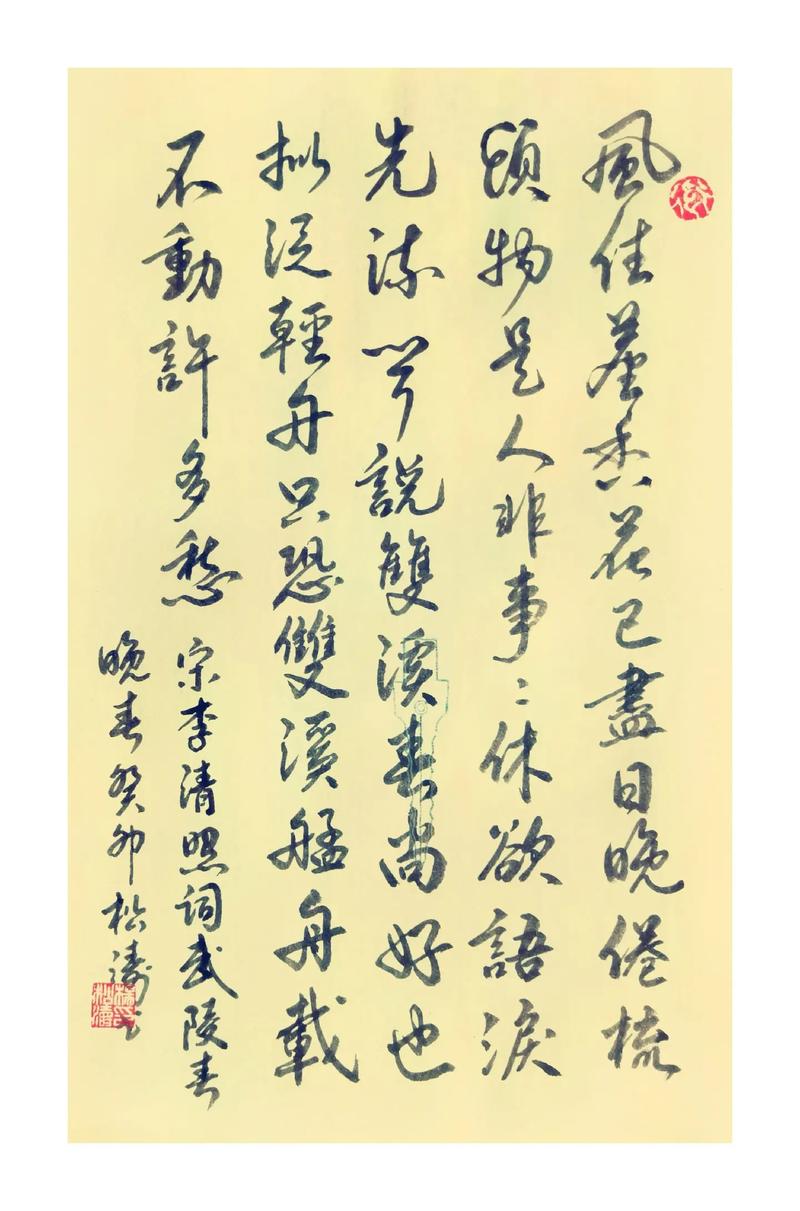 風住塵香花已盡日晚倦梳
頭物是人非事〻休欲語淚
先流聞說雙溪春尚好也
拟泛輕舟只恐雙溪艋舟載
不動許多愁
宋李清照詞武陵春
晚春癸卯松濤